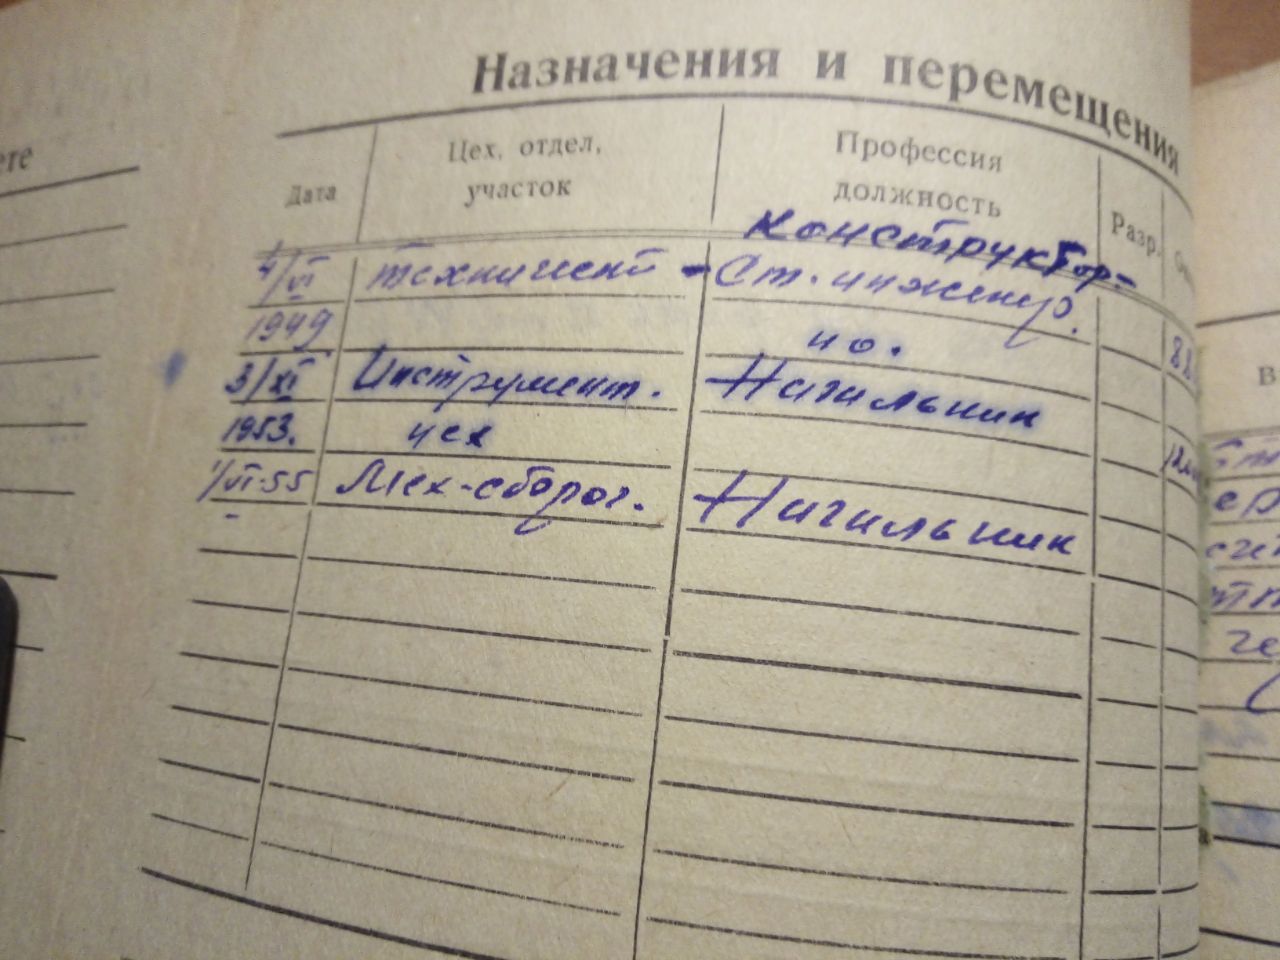 Назначения и перемещения
ете
Дата
Цех, отдел,
участок
Профессия
должность
Разр.
Конструктор-
4/VI технический - Ст. инженер.
1949 но.
3/XI Инструмент. Начальник
1953. цех
1/VI-55 Мех-сбороч. Начальник
В